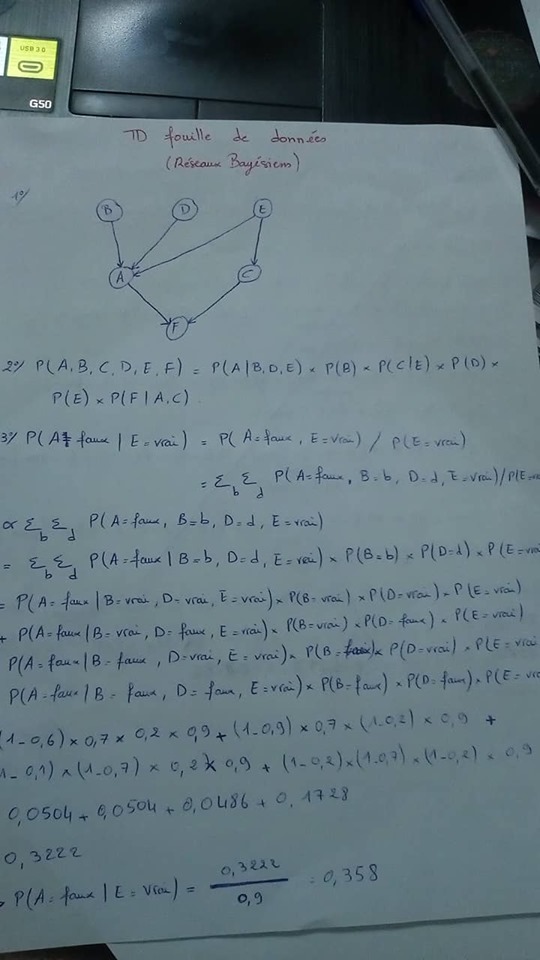 USB 3.0
G50
TD fouille de données
(Réseaux Bayésiens)
1°/
B D E
A C
F
2°/ P(A,B,C,D,E,F) = P(A|B,D,E) × P(B) × P(C|E) × P(D) ×
P(E) × P(F|A,C).
3°/ P(A= faux | E=vrai) = P(A=faux, E=vrai) / P(E=vrai)
= Σ_b Σ_d P(A=faux, B=b, D=d, E=vrai)/P(E=vrai
or Σ_b Σ_d P(A=faux, B=b, D=d, E=vrai)
= Σ_b Σ_d P(A=faux | B=b, D=d, E=vrai) × P(B=b) × P(D=d) × P(E=vrai
= P(A=faux | B=vrai, D=vrai, E=vrai) × P(B=vrai) × P(D=vrai) × P(E=vrai)
+ P(A=faux | B=vrai, D=faux, E=vrai) × P(B=vrai) × P(D=faux) × P(E=vrai)
P(A=faux | B=faux, D=vrai, E=vrai) × P(B=faux) × P(D=vrai) × P(E=vrai
P(A=faux | B=faux, D=faux, E=vrai) × P(B=faux) × P(D=faux) × P(E=vrai
(1-0,6) × 0,7 × 0,2 × 0,9 + (1-0,9) × 0,7 × (1-0,2) × 0,9 +
1-0,1) × (1-0,7) × 0,2 × 0,9 + (1-0,2) × (1-0,7) × (1-0,2) × 0,9
0,0504 + 0,0504 + 0,0486 + 0,1728
0,3222
P(A=faux | E=vrai) = 0,3222 / 0,9 = 0,358